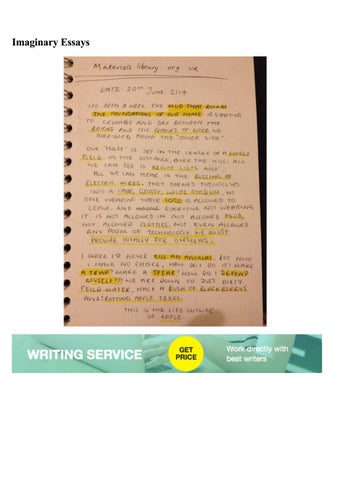 Imaginary Essays
Materials library. org. uk
DATE: 20TH JUNE 2114
ITS BEEN A WEEK. THE MUD THAT BUILDS
THE FOUNDATIONS OF OUR HOME IS STARTING
TO CRUMBLE AND DRY BETWEEN THE
BRICKS AND THE PLANKS OF WOOD WE
FORAGED FROM THE 'OTHER SIDE'.
OUR 'HOUSE' IS SET IN THE CENTER OF A LONELY
FIELD. IN THE DISTANCE, OVER THE HILL ALL
WE CAN SEE IS BRIGHT LIGHTS AND
ALL WE CAN HEAR IS THE BUZZING OF
ELECTRIC WIRES. THEY TURNED THEMSELVES
INTO A GLOSSY, WHITE STADIUM, NO
ONE WEARING THEIR LOGO IS ALLOWED TO
LEAVE, AND EVERYONE NOT WEARING
IT IS NOT ALLOWED IN. NOT ALLOWED FOOD,
NOT ALLOWED CLOTHES, NOT EVEN ALLOWED
ANY FORM OF TECHNOLOGY. WE MUST
PROVIDE TOTALLY FOR OURSELVES.
I SWORE I'D NEVER KILL AN ANIMAL BUT NOW
I HAVE NO CHOICE, HOW DO I DO IT? MAKE
A TRAP? MAKE A SPEAR? HOW DO I DEFEND
MYSELF?? WE ARE DOWN TO JUST DIRTY
FEILD WATER, HALF A BUSH OF BLACKBERRYS
AND ROTTING APPLE TREES.
THIS IS THE LIFE OUTSIDE
OF APPLE.
WRITING SERVICE
GET
PRICE
Work directly with
best writers